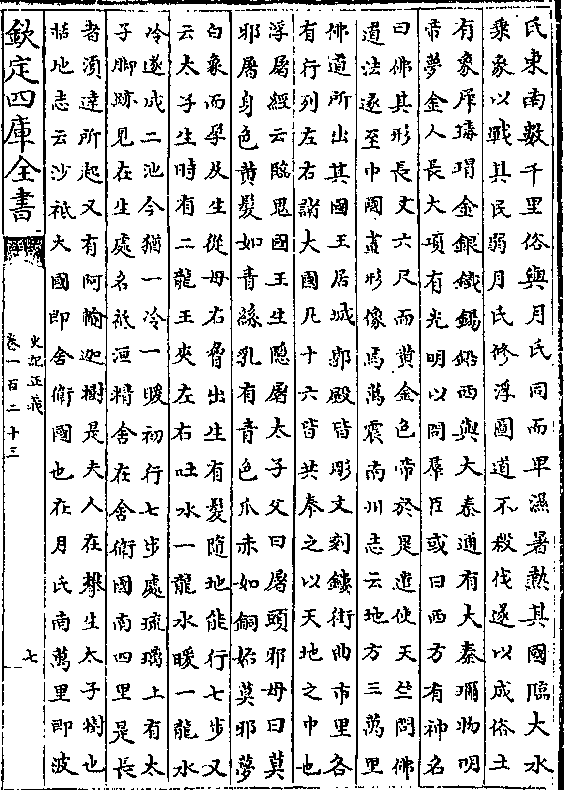 氏東南數千里俗與月氏同而卑濕暑熱其國臨大水
乘象以戰其民弱月氏修浮圖道不殺伐遂以成俗土
有象犀瑇瑁金銀鐵錫鉛西與大秦通有大秦珍物明
帝夢金人長大項有光明以問羣臣或曰西方有神名
曰佛其形長丈六尺而黄金色帝於是遣使天竺問佛
道法遂至中國畫形像焉萬震南川志云地方三萬里
佛道所出其國王居城郭殿皆彫文刻鏤街曲市里各
有行列左右諸大國凡十六皆共奉之以天地之中也
浮屠經云臨鬼國王生隱屠太子父曰屠頭邪母曰莫
邪屠身色黄髮如青絲乳有青色爪赤如銅始莫邪夢
白象而孕及生從母右脅出生有髮隨地能行七步又
云太子生時有二龍王夾左右吐水一龍水暖一龍水
冷遂成二池今猶一冷一暖初行七步處琉璃上有太
子脚跡見在生處名祇洹精舍在舍衛國南四里是長
者須達所起又有阿輸迦樹是夫人在攀生太子樹也
括地志云沙祇大國即舍衛國也在月氏南萬里即波
欽定四庫全書
史記正義
卷一百二十三
七